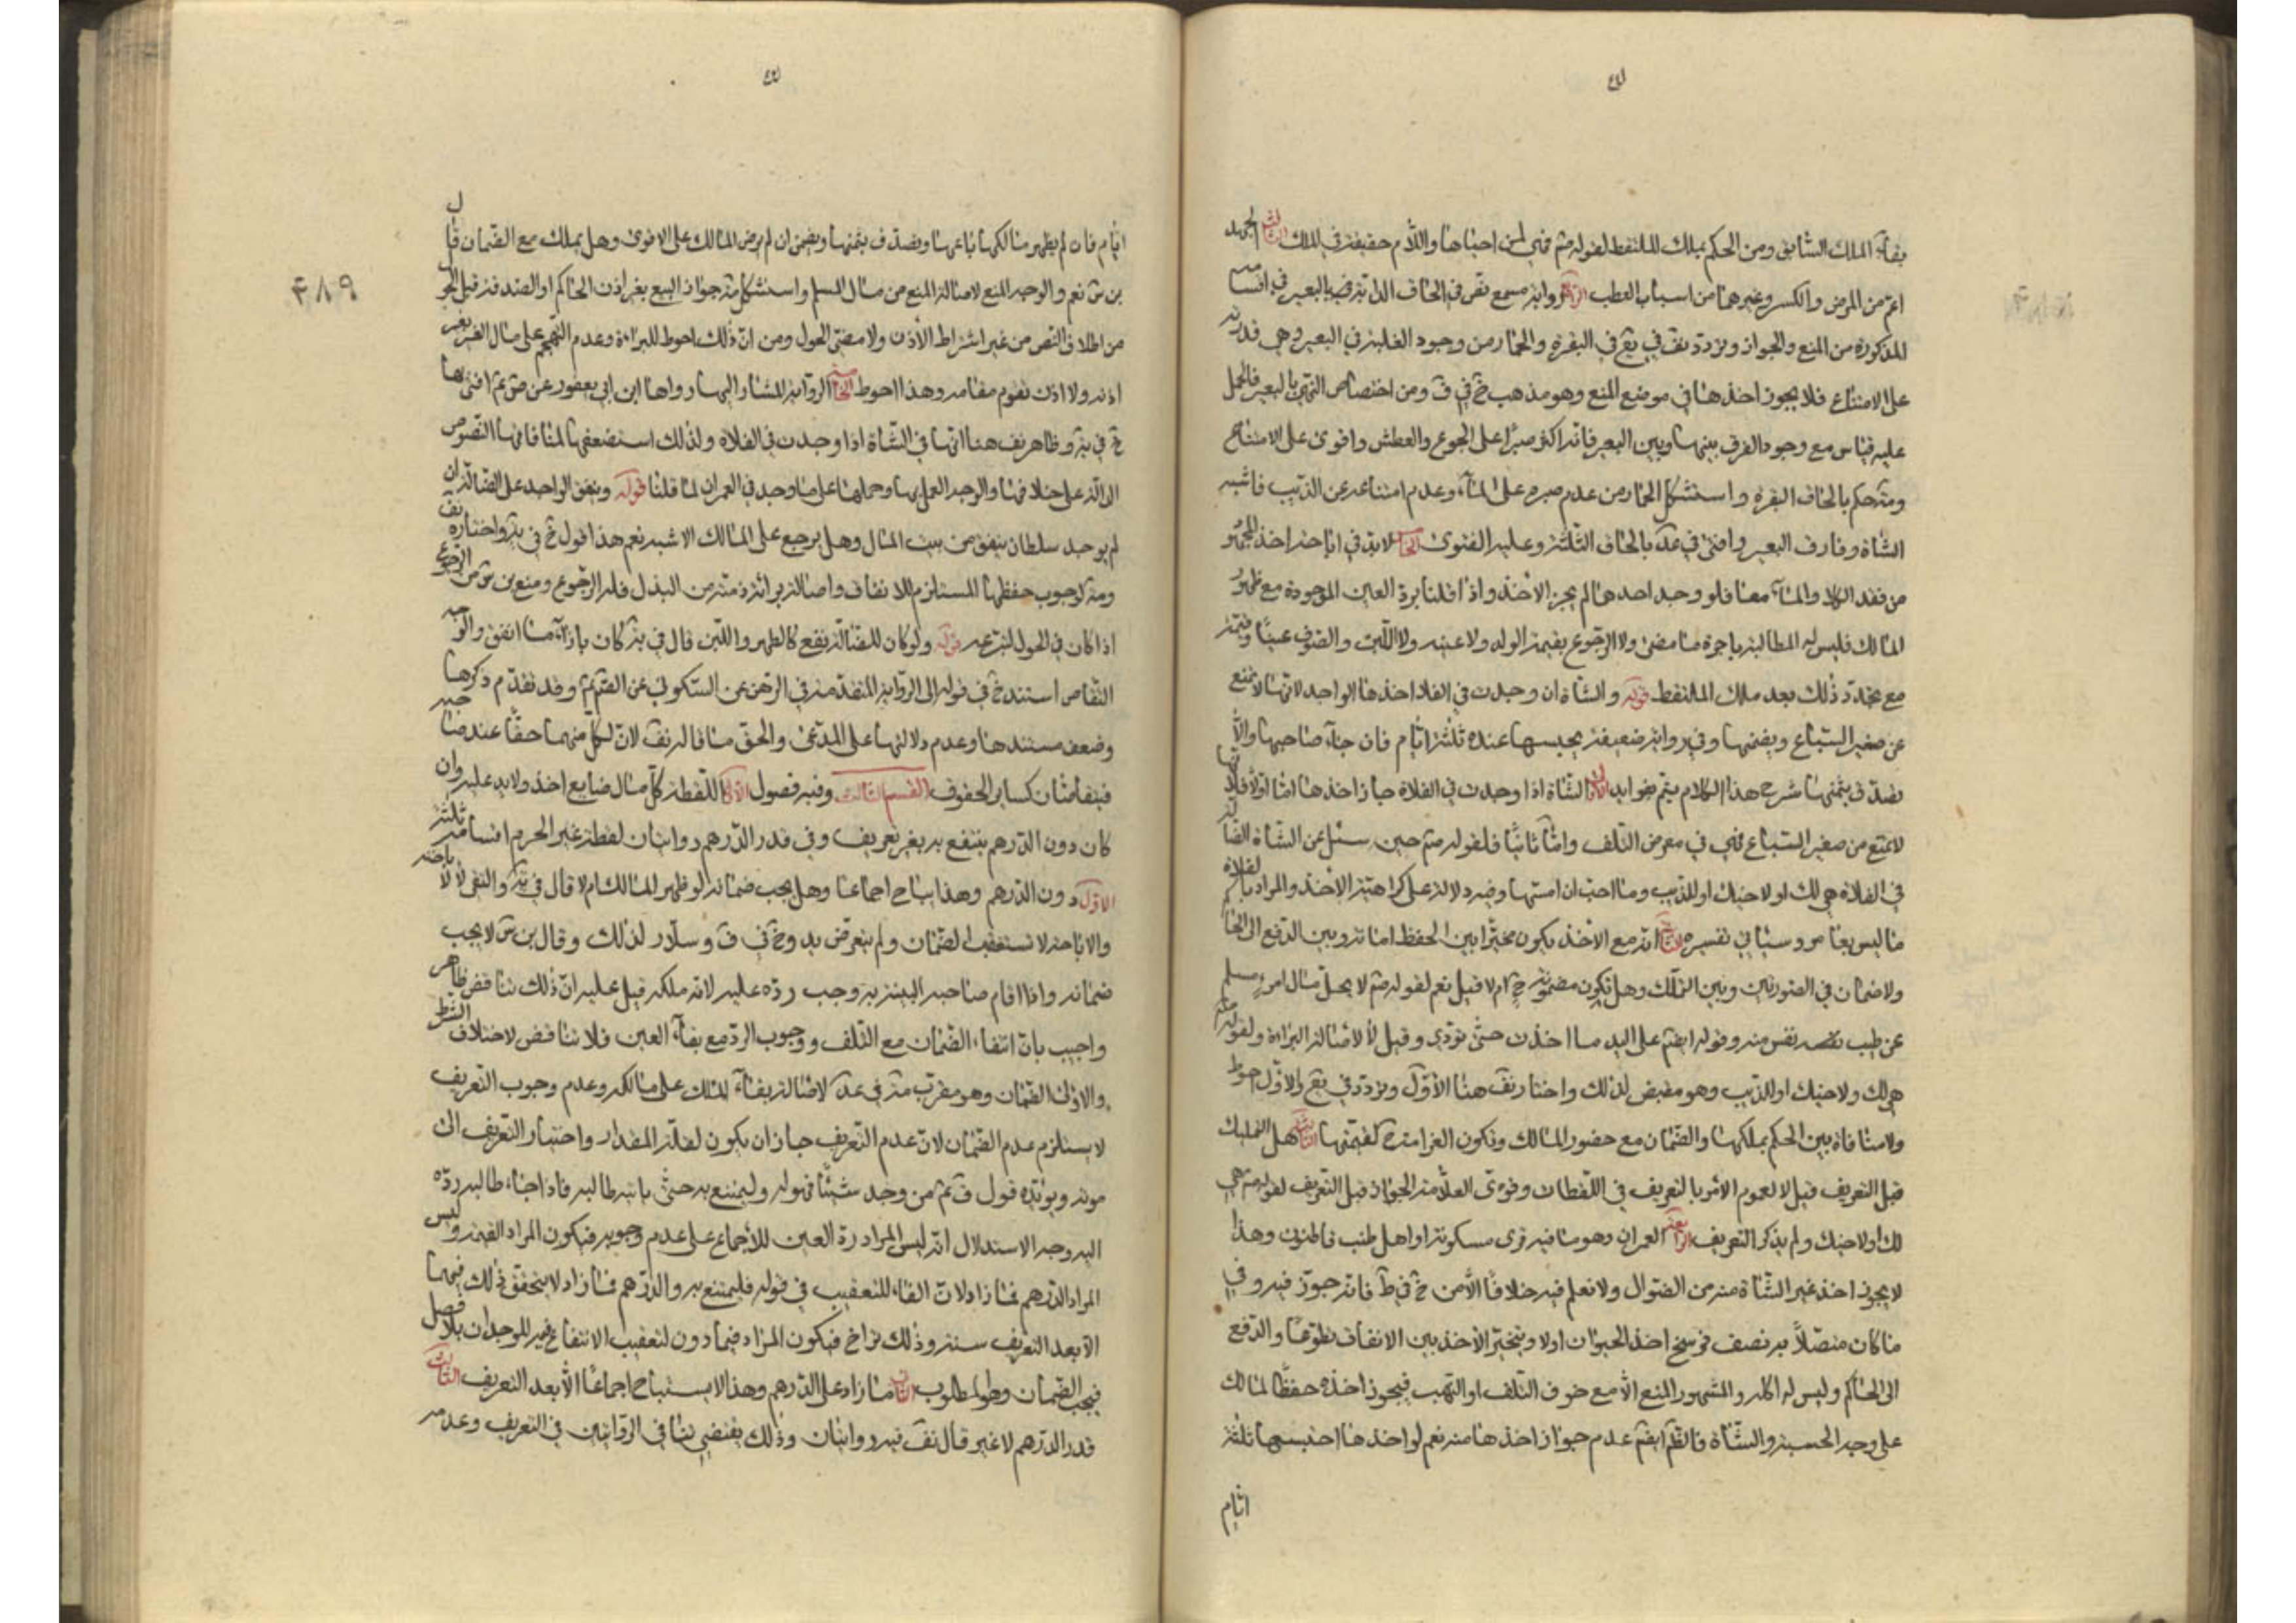 بقاء الملك السابق ومن الحكم بملك الملتقط لقوله صم فهي لمن احياها واللام حقيقة في الملك الثالث الجهد
اعم من المرض والكسر وغيرهما من اسباب العطب الرابع رواية مسمع نص في الحاق الدابة بالبعير في اقسامه
المذكورة من المنع والجواز وتردد نف في يع في البقرة والحمار من وجود العلية في البعير وهي قدرته
على الامتناع فلا يجوز اخذها في موضع المنع وهو مذهب خ في ف ومن اختصاص النهي بالبعير فالحمل
عليه قياس مع وجود الفرق بينهما وبين البعير فانه اكثر صبرا على الجوع والعطش واقوى على الامتناع
ومنه حكم بالحاق البقرة واستشكل الحمار من عدم صبره على الماء وعدم امتناعه عن الذيب فاشبه
الشاة وفارق البعير وافتى في عد بالحاق الثلثة وعليه الفتوى الخامس لابد في اباحة اخذ المجهود
من فقد الكلاء والماء معا فلو وجد احدهما لم يجز الاخذ واذا قلنا برد العين الموجودة مع ظهور
المالك فليس له المطالبة باجرة ما مضى ولا الرجوع بقيمة الولد ولا عينه ولا اللبن والصوف عينا وقيمة
مع تجدد ذلك بعد ملك الملتقط قوله والشاة ان وجدت في الفلاة اخذها الواجد لانها لا تمتنع
عن صغير السباع ويضمنها وفي رواية ضعيفة يحبسها عنده ثلثة ايام فان جاء صاحبها والا
تصدق بثمنها شرح هذا الكلام يتم بفوايد الاولى الشاة اذا وجدت في الفلاة جاز اخذها اما اولا فلانها
لا تمتنع من صغير السباع فهي في معرض التلف واما ثانيا فلقوله صم حين سئل عن الشاة الضالة
في الفلاة هي لك او لاخيك او للذيب وما احب ان امسها وفيه دلالة على كراهة الاخذ والمراد بالفلاة
ما ليس بعامر وسياتي تفسيره الثانية انه مع الاخذ يكون مخيرا بين الحفظ امانة وبين الدفع الى الحاكم
ولا ضمان في الصورتين وبين التملك وهل تكون مضمونة ح ام لا قيل نعم لقوله صم لا يحل مال امرء مسلم
عن طيب نفس منه وقوله ايضم على اليد ما اخذت حتى تؤدي وقيل لا لاصالة البراءة ولقوله
هي لك ولاخيك او للذيب وهو مقبض لذلك واختار نف هنا الاول وتردد في يع والاول احوط
ولا منافاة بين الحكم بملكها والضمان مع حضور المالك وتكون الغرامة كقيمتها الثالثة هل التمليك
قبل التعريف قيل لا لعموم الامر بالتعريف في اللقطات وقوى العلامة الجواز قبل التعريف لقوله صم هي
لك او لاخيك ولم يذكر التعريف الرابعة العمران وهو ما فيه قرى مسكونة او اهل طنب قاطنون وهذا
لا يجوز اخذ غير الشاة منه من الضوال ولا نعلم فيه خلافا الا من خ في ط فانه جوز فيه وفي
ما كان متصلا به نصف فرسخ اخذ الحيوان اولا ويتخير الاخذ بين الانفاق تطوعا والدفع
الى الحاكم وليس له اكله والمشهور المنع الا مع خوف التلف او النهب فيجوز اخذه حفظا لمالك
على وجه الحسبة والشاة فالظم ايضم عدم جواز اخذها منه نعم لو اخذها احتبسها ثلثة
ايام
ايام فان لم يظهر مالكها باعها وتصدق بثمنها ويضمن ان لم يرض المالك على الاقوى وهل يملك مع الضمان قال
بن س نعم والوجه المنع لاصالة المنع من مال المسلم واستشكل منه جواز البيع بغير اذن الحاكم او الصدقة قبل الحول
من اطلاق النص من غير اشتراط الاذن ولا مضى الحول ومن ان ذلك احوط للبراءة وعدم التهجم على مال الغير بغير
اذنه ولا اذن تقوم مقامه وهذا احوط الخامسة الرواية المشار اليها رواها ابن ابي يعفور عن ص عم افتى بها
خ في يه وظاهر نف هنا انها في الشاة اذا وجدت في الفلاة ولذلك استضعفها لمنافاتها النصوص
الدالة على خلافها والوجه العمل بها وحملها على ما وجد في العمران لما قلنا قوله وينفق الواجد على الضالة ان
لم يوجد سلطان ينفق من بيت المال وهل يرجع على المالك الاشبه نعم هذا قول خ في يه واختاره نف
ومنه لوجوب حفظها المستلزم للانفاق واصالة براءة ذمته من البذل فله الرجوع ومنع بن س من الرجوع
اذا كان في الحول لتبرعه قوله ولو كان للضالة نفع كالظهر واللبن قال في يه كان بازاء ما انفق والوجه
التقاص استند خ في قوله الى الرواية المتقدمة في الرهن عن السكوني عن الصم عم وقد تقدم ذكرها
وضعف مستندها وعدم دلالتها على المدعى والحق ما قاله نف لان لكل منهما حقا عند صاحبه
فيتقاصان كساير الحقوق القسم الثالث وفيه فصول الاول اللقطة كل مال ضايع اخذ ولا يد عليه وان
كان دون الدرهم ينتفع به بغير تعريف وفي قدر الدرهم روايتان لقطة غير الحرم اقسامه ثلثة
الاول دون الدرهم وهذا يباح اجماعا وهل يجب ضمانه لو ظهر المالك ام لا قال في يه والتقى لا لاباحته
والاباحة لا تستعقب الضمان ولم يتعرض يد وخ في ف وسلار لذلك وقال بن س لا يجب
ضمانه واذا اقام صاحبه البينة به وجب رده عليه لانه ملكه قيل عليه ان ذلك تناقض ظاهر
واجيب بان انتفاء الضمان مع التلف ووجوب الرد مع بقاء العين فلا تناقض لاختلاف الشرط
والاولى الضمان وهو مقرب منه في عد لاصالة بقاء الملك على مالكه وعدم وجوب التعريف
لا يستلزم عدم الضمان لان عدم التعريف جاز ان يكون لقلة المقدار واحتياز التعريف الى
مونة ويؤيده قول ق عم من وجد شيئا فهو له وليتمتع به حتى ياتيه طالبه فاذا جاء طالبه رده
اليه وجه الاستدلال انه ليس المراد رد العين للاجماع على عدم وجوبه فيكون المراد القيمة وليس
المراد الدرهم فما زاد لان الفاء للتعقيب في قوله فليتمتع به والدرهم فما زاد لا يتحقق ذلك فيهما
الا بعد التعريف سنة وذلك تراخ فيكون المراد فيما دون لتعقيب الانتفاع فيه للوجدان بلا فصل
فيجب الضمان وهو المطلوب الثاني ما زاد على الدرهم وهذا لا يستباح اجماعا الا بعد التعريف الثالث
قدر الدرهم لا غير قال نف فيه روايتان وذلك يقتضي تنافي الروايتين في التعريف وعدمه
۴۸۹